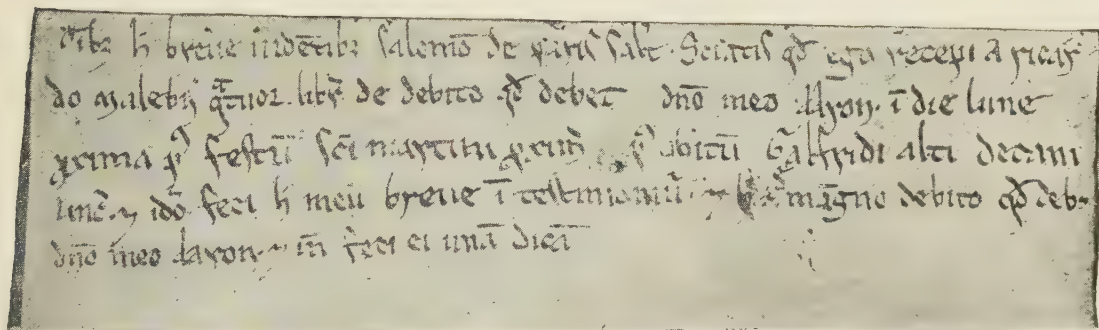 Oībꝫ h̄ breue uidētibꝫ salemō de ꝑaris̄ salt̄. Sciatis qđ ego recepi a ricar
do malebis̄ q̄tuor libr̄ de debito qđ debet dn̄o meo Aaron. ī die lune
ꝓxima pꝰ festū sc̄i martini ꝓxim̄ pꝰ obitū Galfridi alti decani
linc̄. ⁊ idō feci h̄ meū breue ī testimoniū magno debito qđ deb
dn̄o meo Aaron. ⁊ īn feci ei unā dicā